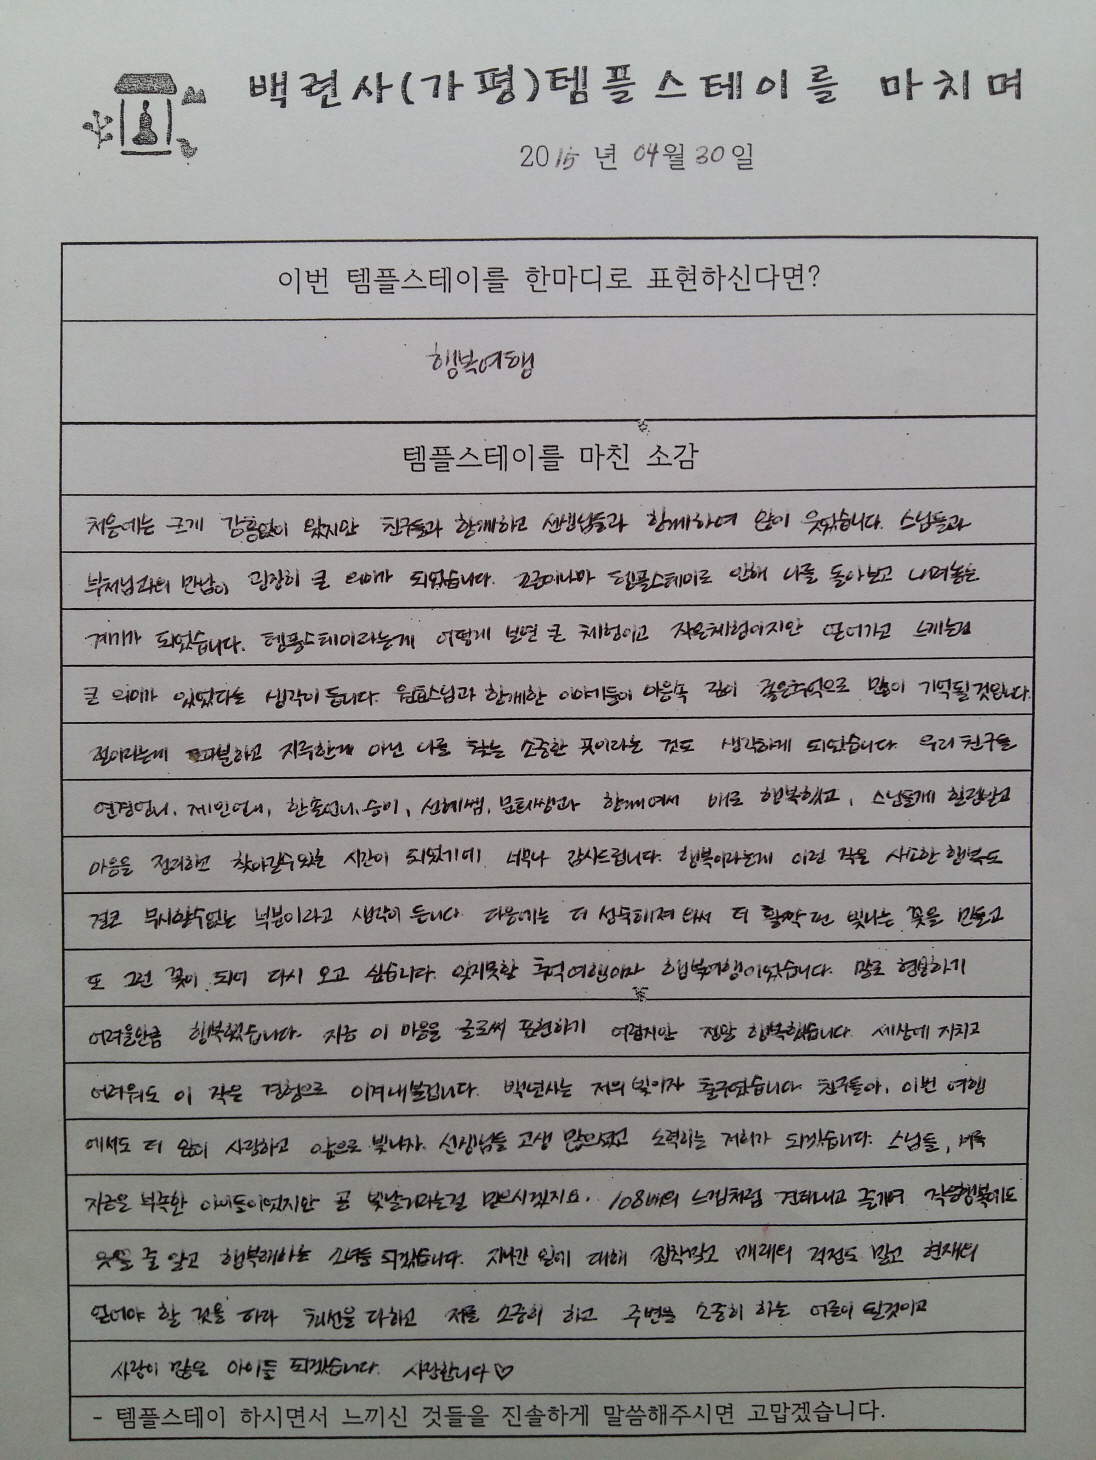 백련사(가평)템플스테이를 마치며
2015년 04월 30일
이번 템플스테이를 한마디로 표현하신다면?
행복여행
템플스테이를 마친 소감
처음에는 크게 감흥없이 왔지만 친구들과 함께하고 선생님들과 함께하여 많이 웃었습니다. 스님들과
부처님과의 만남이 굉장히 큰 의미가 되었습니다. 조금이나마 템플스테이로 인해 나를 돌아보고 내려놓는
계기가 되었습니다. 템플스테이라는게 어떻게 보면 큰 체험이고 작은체험이지만 얻어가고 느끼는건
큰 의미가 있었다는 생각이 듭니다. 스님과 함께한 이야기들이 마음속 깊이 좋은추억으로 많이 기억될것입니다.
절이라는게 따분하고 지루한게 아닌 나를 찾는 소중한 곳이라는 것도 생각하게 되었습니다. 우리 친구들
연경언니, 제인언니, 한솔언니, 승이, 선혜쌤, 쌤과 함께여서 배로 행복했고, 스님들께 힐링받고
마음을 정리하면 찾아갈수있는 시간이 되었기에 너무나 감사드립니다. 행복이라는게 이런 작은 사소한 행복도
결코 무시할수없는 덕분이라고 생각이 듭니다. 다음에는 더 성숙해져 와서 더 활짝 핀 빛나는 꽃을 만들고
또 그런 꽃이 되어 다시 오고 싶습니다. 잊지못할 추억여행이자 행복여행이었습니다. 말로 형용하기
어려울만큼 행복했습니다. 지금 이 마음을 글로써 표현하기 어렵지만 정말 행복했습니다. 세상에 지치고
어려워도 이 작은 경험으로 이겨내볼겁니다. 백년사는 저의 빛이자 출구였습니다. 친구들아, 이번 여행
에서도 더 많이 사랑하고 앞으로 빛나자. 선생님들 고생 많으셨고 노력하는 저희가 되겠습니다. 스님들, 비록
지금은 부족한 아이들이었지만 곧 빛날거라는걸 믿으시겠지요. 108배의 느낌처럼 견뎌내고 즐기며 작은행복에도
웃을 줄 알고 행복해하는 소녀들 되겠습니다. 지나간 일에 대해 집착말고 미래의 걱정도 말고 현재의
일어야 할 것을 따라 최선을 다하고 저를 소중히 하고 주변을 소중히 하는 어른이 될것이고
사랑이 많은 아이들 되겠습니다. 사랑합니다♡
- 템플스테이 하시면서 느끼신 것들을 진솔하게 말씀해주시면 고맙겠습니다.